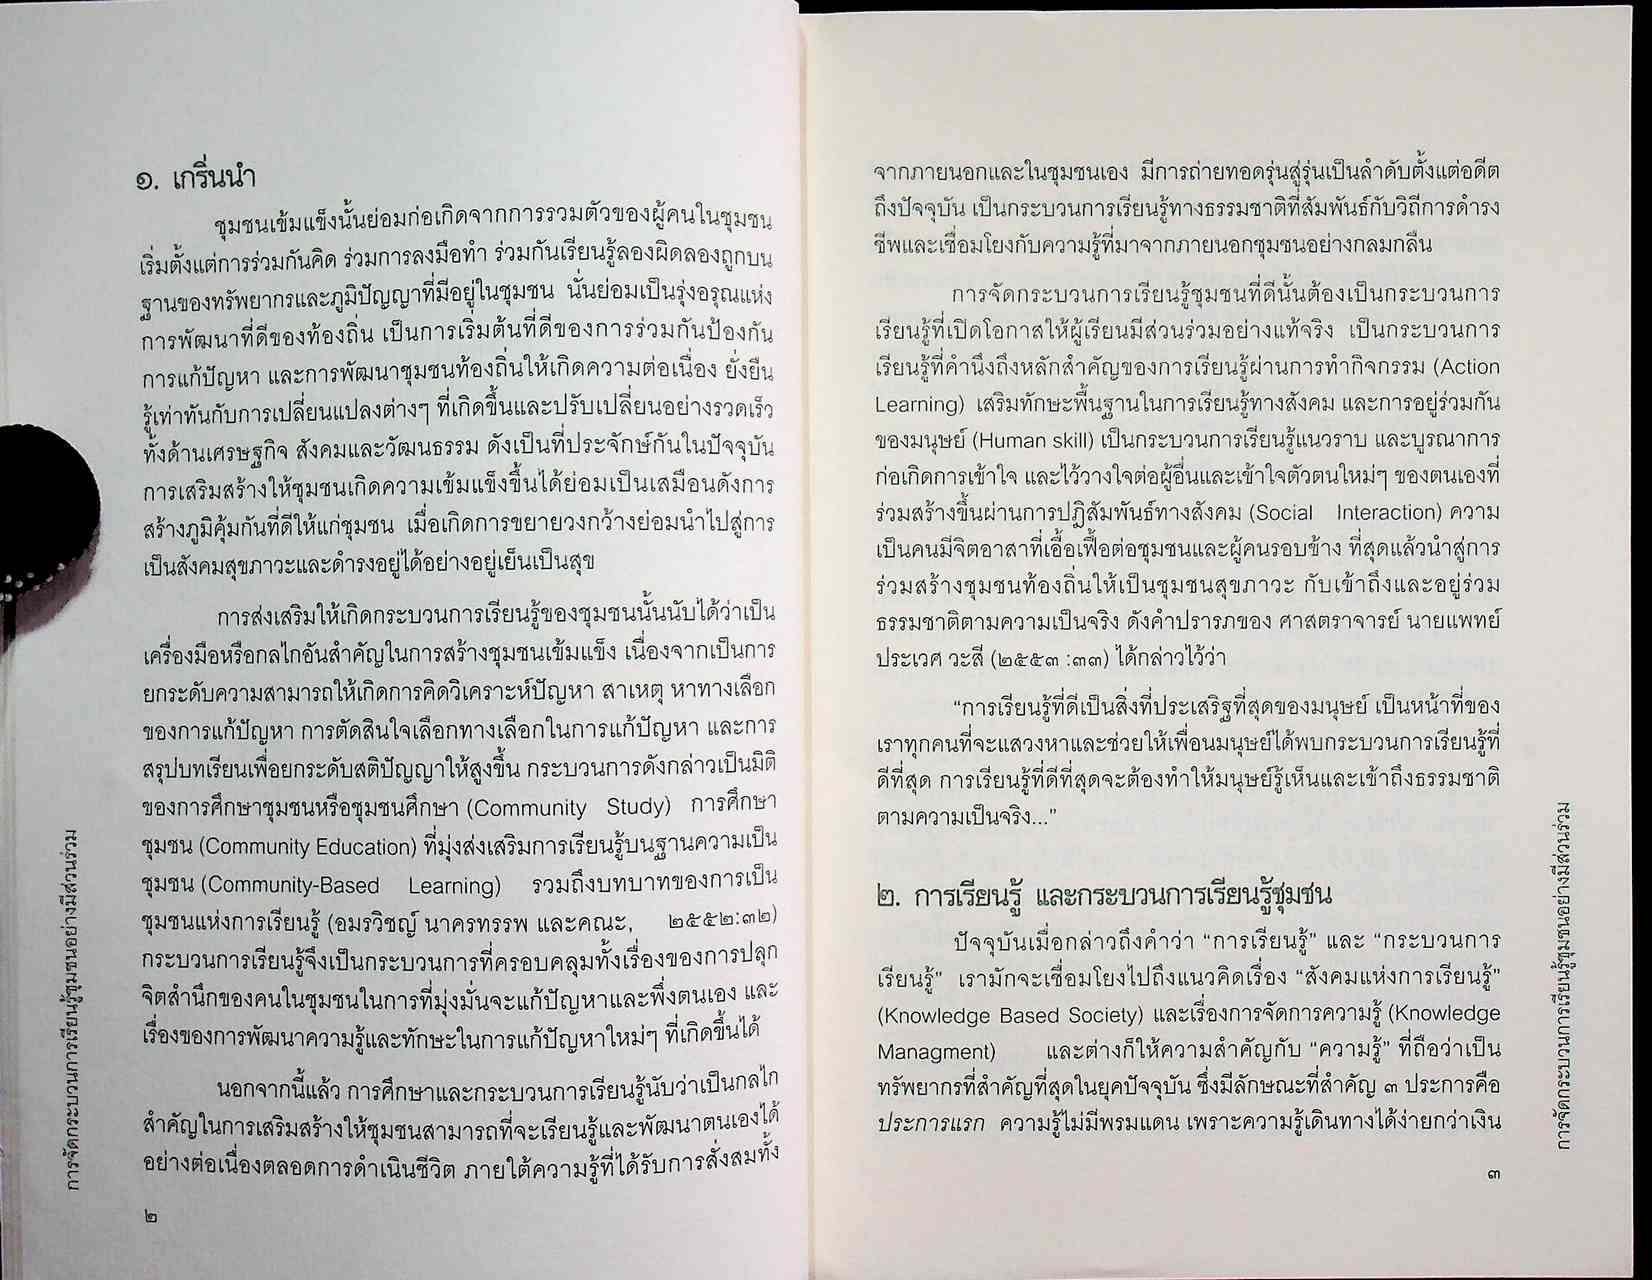 ๑. เกริ่นนำ
ชุมชนเข้มแข็งนั้นย่อมก่อเกิดจากการรวมตัวของผู้คนในชุมชน
เริ่มตั้งแต่การร่วมกันคิด ร่วมการลงมือทำ ร่วมกันเรียนรู้ลองผิดลองถูกบน
ฐานของทรัพยากรและภูมิปัญญาที่มีอยู่ในชุมชน นั่นย่อมเป็นรุ่งอรุณแห่ง
การพัฒนาที่ดีของท้องถิ่น เป็นการเริ่มต้นที่ดีของการร่วมกันป้องกัน
การแก้ปัญหา และการพัฒนาชุมชนท้องถิ่นให้เกิดความต่อเนื่อง ยั่งยืน
รู้เท่าทันกับการเปลี่ยนแปลงต่างๆ ที่เกิดขึ้นและปรับเปลี่ยนอย่างรวดเร็ว
ทั้งด้านเศรษฐกิจ สังคมและวัฒนธรรม ดังเป็นที่ประจักษ์กันในปัจจุบัน
การเสริมสร้างให้ชุมชนเกิดความเข้มแข็งขึ้นได้ย่อมเป็นเสมือนดังการ
สร้างภูมิคุ้มกันที่ดีให้แก่ชุมชน เมื่อเกิดการขยายวงกว้างย่อมนำไปสู่การ
เป็นสังคมสุขภาวะและดำรงอยู่ได้อย่างอยู่เย็นเป็นสุข
การส่งเสริมให้เกิดกระบวนการเรียนรู้ของชุมชนนั้นนับได้ว่าเป็น
เครื่องมือหรือกลไกอันสำคัญในการสร้างชุมชนเข้มแข็ง เนื่องจากเป็นการ
ยกระดับความสามารถให้เกิดการคิดวิเคราะห์ปัญหา สาเหตุ หาทางเลือก
ของการแก้ปัญหา การตัดสินใจเลือกทางเลือกในการแก้ปัญหา และการ
สรุปบทเรียนเพื่อยกระดับสติปัญญาให้สูงขึ้น กระบวนการดังกล่าวเป็นมิติ
ของการศึกษาชุมชนหรือชุมชนศึกษา (Community Study) การศึกษา
ชุมชน (Community Education) ที่มุ่งส่งเสริมการเรียนรู้บนฐานความเป็น
ชุมชน (Community-Based Learning) รวมถึงบทบาทของการเป็น
ชุมชนแห่งการเรียนรู้ (อมรวิชญ์ นาครทรรพ และคณะ, ๒๕๕๒:๓๒)
กระบวนการเรียนรู้จึงเป็นกระบวนการที่ครอบคลุมทั้งเรื่องของการปลุก
จิตสำนึกของคนในชุมชนในการที่มุ่งมั่นจะแก้ปัญหาและพึ่งตนเอง และ
เรื่องของการพัฒนาความรู้และทักษะในการแก้ปัญหาใหม่ๆ ที่เกิดขึ้นได้
นอกจากนี้แล้ว การศึกษาและกระบวนการเรียนรู้นับว่าเป็นกลไก
สำคัญในการเสริมสร้างให้ชุมชนสามารถที่จะเรียนรู้และพัฒนาตนเองได้
อย่างต่อเนื่องตลอดการดำเนินชีวิต ภายใต้ความรู้ที่ได้รับการสั่งสมทั้ง
๒
การจัดกระบวนการเรียนรู้ชุมชนอย่างมีส่วนร่วม
จากภายนอกและในชุมชนเอง มีการถ่ายทอดรุ่นสู่รุ่นเป็นลำดับตั้งแต่อดีต
ถึงปัจจุบัน เป็นกระบวนการเรียนรู้ทางธรรมชาติที่สัมพันธ์กับวิถีการดำรง
ชีพและเชื่อมโยงกับความรู้ที่มาจากภายนอกชุมชนอย่างกลมกลืน
การจัดกระบวนการเรียนรู้ชุมชนที่ดีนั้นต้องเป็นกระบวนการ
เรียนรู้ที่เปิดโอกาสให้ผู้เรียนมีส่วนร่วมอย่างแท้จริง เป็นกระบวนการ
เรียนรู้ที่คำนึงถึงหลักสำคัญของการเรียนรู้ผ่านการทำกิจกรรม (Action
Learning) เสริมทักษะพื้นฐานในการเรียนรู้ทางสังคม และการอยู่ร่วมกัน
ของมนุษย์ (Human skill) เป็นกระบวนการเรียนรู้แนวราบ และบูรณาการ
ก่อเกิดการเข้าใจ และไว้วางใจต่อผู้อื่นและเข้าใจตัวตนใหม่ๆ ของตนเองที่
ร่วมสร้างขึ้นผ่านการปฏิสัมพันธ์ทางสังคม (Social Interaction) ความ
เป็นคนมีจิตอาสาที่เอื้อเฟื้อต่อชุมชนและผู้คนรอบข้าง ที่สุดแล้วนำสู่การ
ร่วมสร้างชุมชนท้องถิ่นให้เป็นชุมชนสุขภาวะ กับเข้าถึงและอยู่ร่วม
ธรรมชาติตามความเป็นจริง ดังคำปรารภของ ศาสตราจารย์ นายแพทย์
ประเวศ วะสี (๒๕๕๓ :๓๓) ได้กล่าวไว้ว่า
“การเรียนรู้ที่ดีเป็นสิ่งที่ประเสริฐที่สุดของมนุษย์ เป็นหน้าที่ของ
เราทุกคนที่จะแสวงหาและช่วยให้เพื่อนมนุษย์ได้พบกระบวนการเรียนรู้ที่
ดีที่สุด การเรียนรู้ที่ดีที่สุดจะต้องทำให้มนุษย์รู้เห็นและเข้าถึงธรรมชาติ
ตามความเป็นจริง...”
๒. การเรียนรู้ และกระบวนการเรียนรู้ชุมชน
ปัจจุบันเมื่อกล่าวถึงคำว่า “การเรียนรู้” และ “กระบวนการ
เรียนรู้” เรามักจะเชื่อมโยงไปถึงแนวคิดเรื่อง “สังคมแห่งการเรียนรู้”
(Knowledge Based Society) และเรื่องการจัดการความรู้ (Knowledge
Managment) และต่างก็ให้ความสำคัญกับ “ความรู้” ที่ถือว่าเป็น
ทรัพยากรที่สำคัญที่สุดในยุคปัจจุบัน ซึ่งมีลักษณะที่สำคัญ ๓ ประการคือ
ประการแรก ความรู้ไม่มีพรมแดน เพราะความรู้เดินทางได้ง่ายกว่าเงิน
๓
การจัดกระบวนการเรียนรู้ชุมชนอย่างมีส่วนร่วม